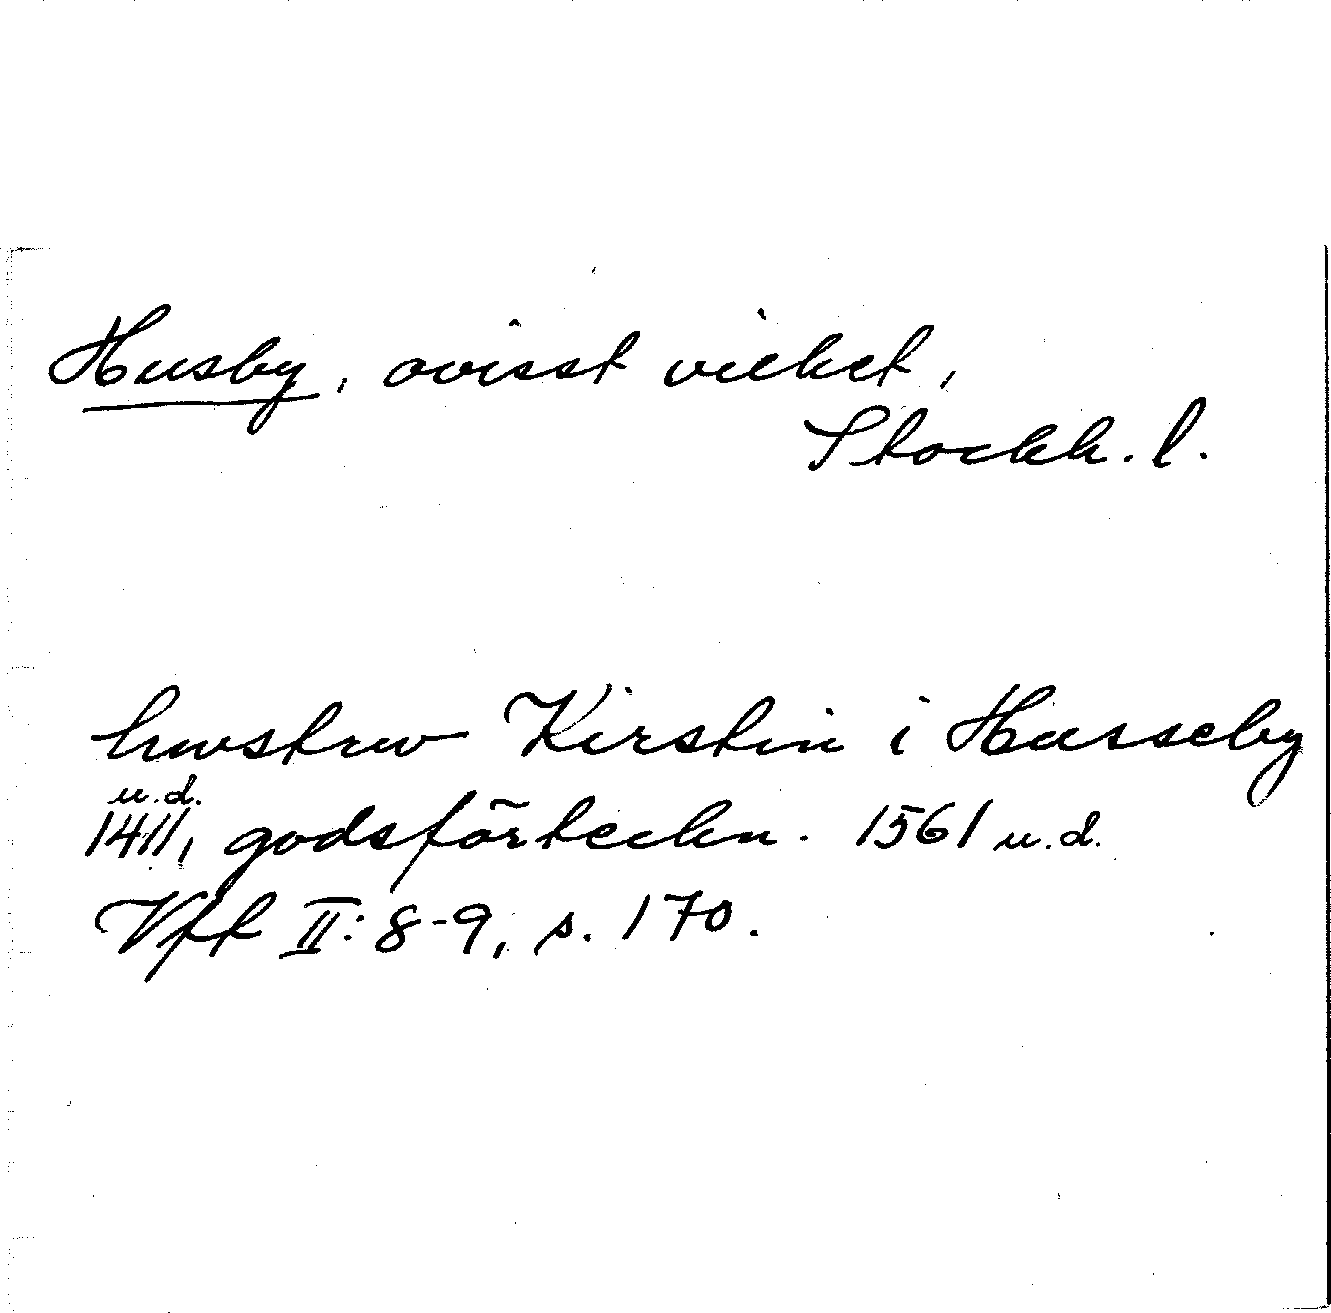 Husby, ovisst vilket,
Stockh. l.
hwstrw Kirstin i Husseby
u.d.
1411, godsförteckn. 1561 u.d.
Vff II: 8-9, s. 170.